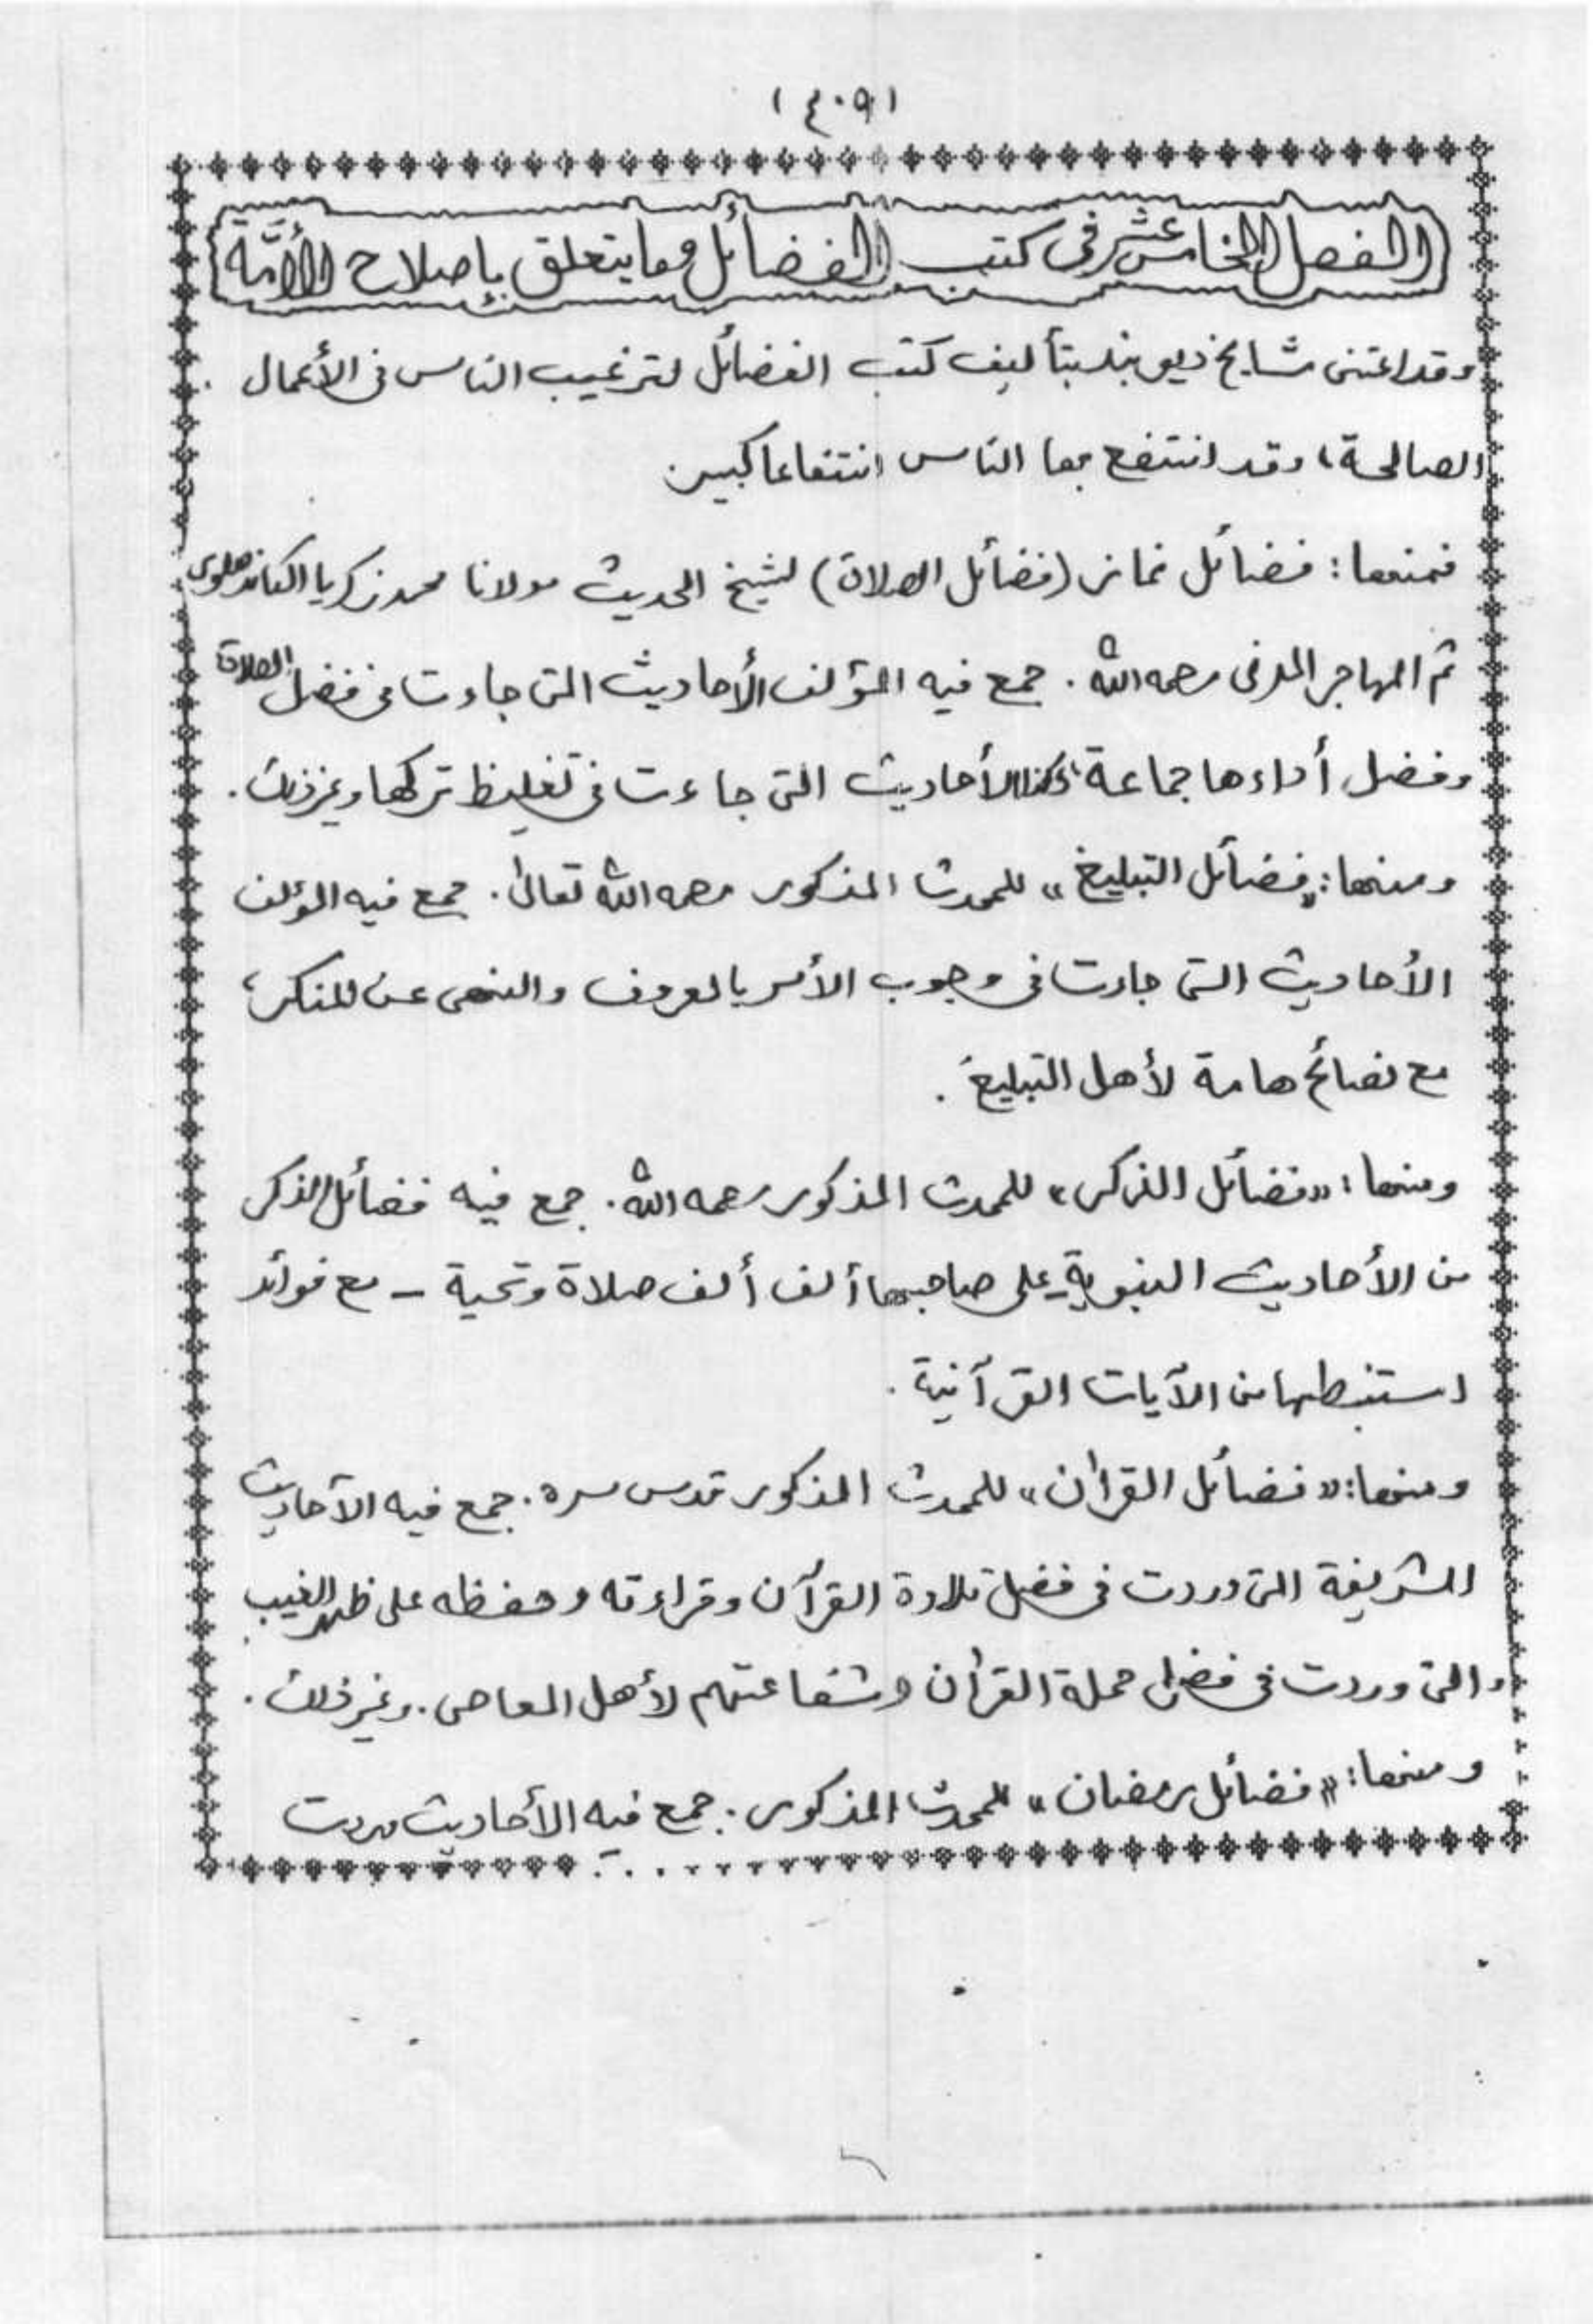 (٤٠٩)
الفصل الخامس عشر فى كتب الفضائل ومما يتعلق بإصلاح الأُمَّة
وقد اعتنى مشايخ ديوبند بتأليف كتب الفضائل لترغيب الناس فى الأعمال
الصالحة، وقد انتفع بها الناس انتفاعا كبير.
فمنها: فضائل نماز (فضائل الصلاة) لشيخ الحديث مولانا محمد زكريا الكاندهلوى
ثم المهاجر المدنى رحمه الله. جمع فيه المؤلف الأحاديث التى جاءت فى فضل الصلاة
وفضل أداءها جماعة وكذا الأحاديث التى جاءت فى تغليظ تركها وغير ذلك.
ومنها: «فضائل التبليغ» للمحدث المذكور رحمه الله تعالى. جمع فيه المؤلف
الأحاديث التى جاءت فى وجوب الأمر بالمعروف والنهى عن المنكر،
مع نصائح هامة لأهل التبليغ.
ومنها: «فضائل الذكر» للمحدث المذكور رحمه الله. جمع فيه فضائل الذكر
من الأحاديث النبوية على صاحبها ألف ألف صلاة وتحية – مع فوائد
استنبطها من الآيات القرآنية.
ومنها: «فضائل القرآن» للمحدث المذكور قدس سره. جمع فيه الآحاديث
الشريفة التى وردت فى فضل تلاوة القرآن وقراءته وحفظه على ظهر الغيب
والتى وردت فى فضل حملة القرآن وشفاعتهم لأهل المعاصى. وغير ذلك.
ومنها: «فضائل رمضان» للمحدث المذكور. جمع فيه الأحاديث وردت